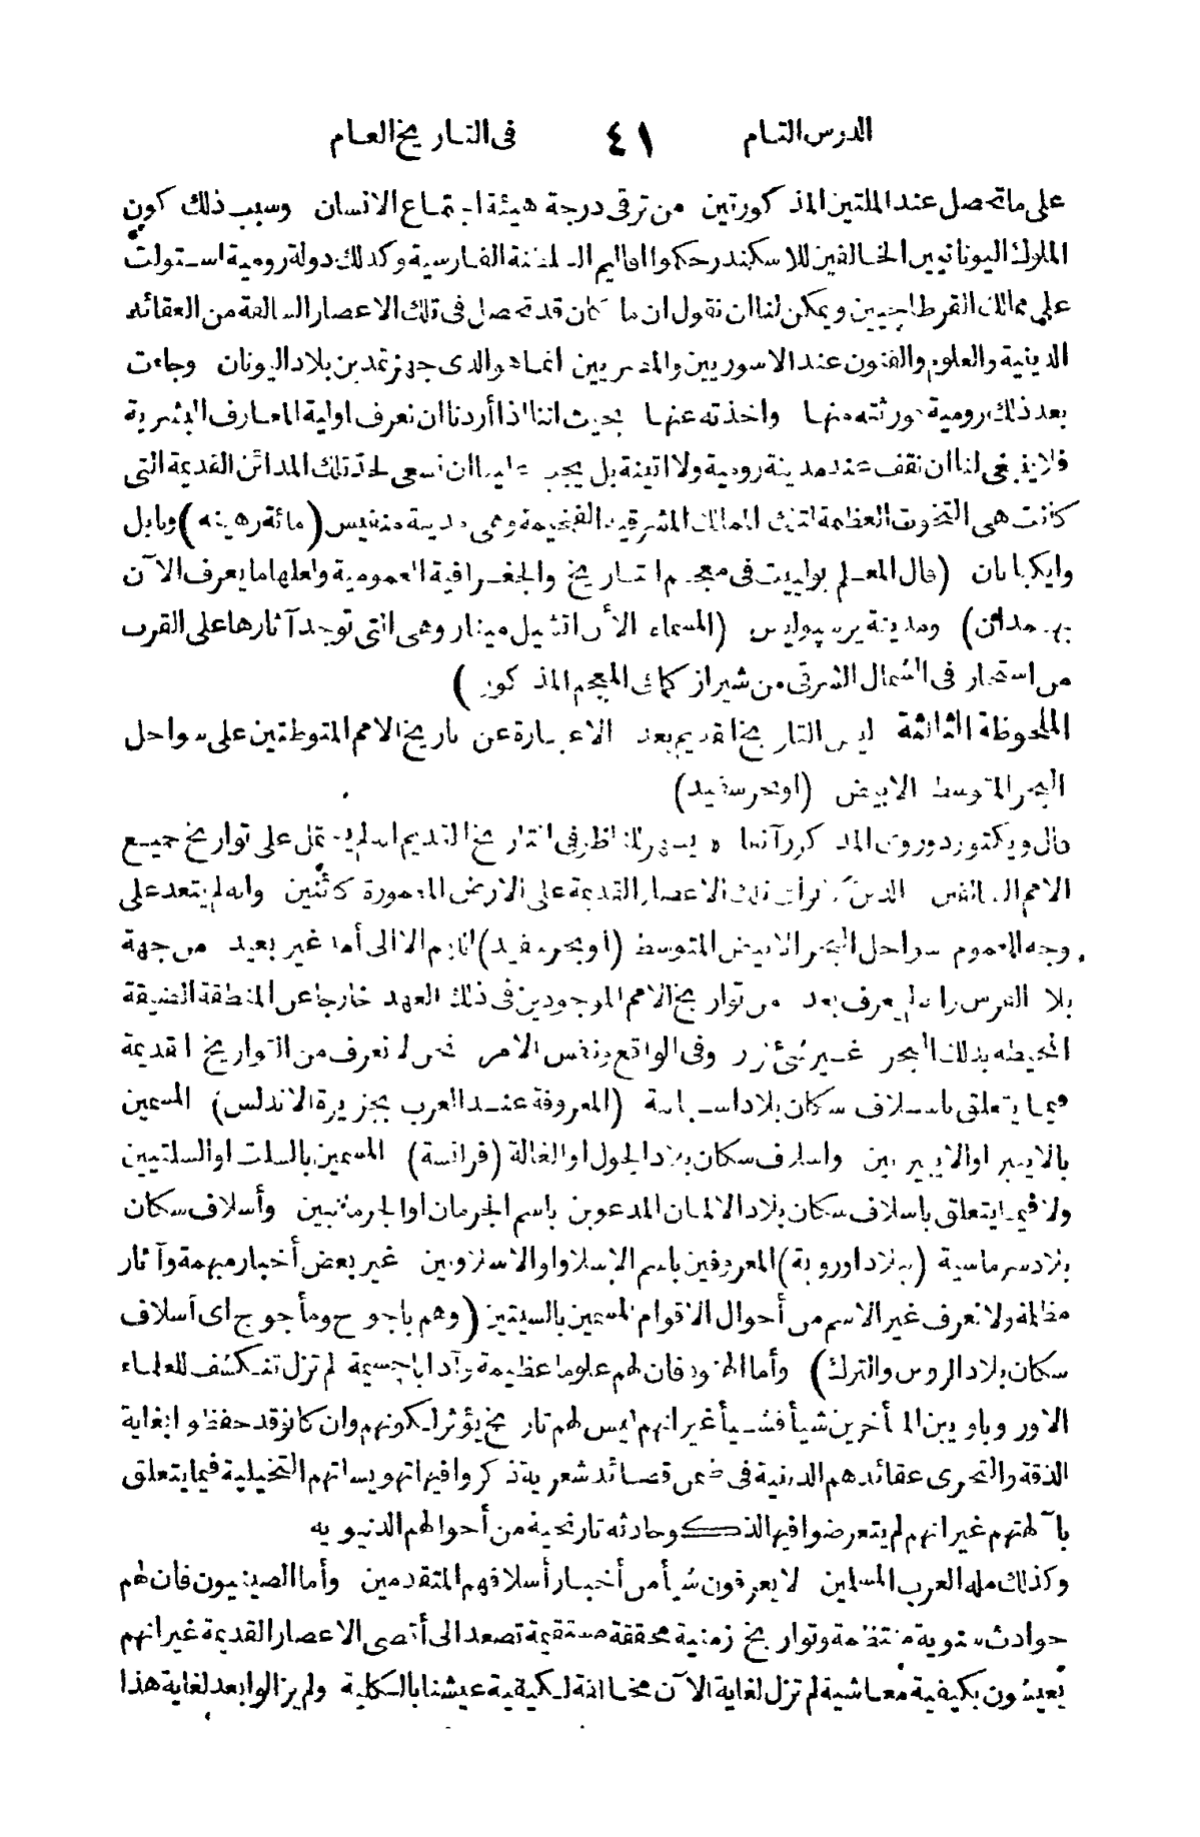 الدرس التام ٤١ فى التاريخ العام
على ما تحصل عند الملتين المذكورتين من ترقى درجة هيئة اجتماع الانسان وسبب ذلك كون
الملوك اليونانيين الخالفين للاسكندر حكموا اقاليم السلطنة الفارسية وكذلك دولة رومية استولت
على ممالك القرطاجيين ويمكن لنا ان نقول ان ما كان قد تحصل فى تلك الاعصار السالفة من العقائد
الدينية والعلوم والفنون عند الاسوريين والمصريين انما هو الذى جهز تمدين بلاد اليونان وجاءت
بعد ذلك رومية فورثته منها واخذته عنها بحيث اننا اذا أردنا ان نعرف اولية المعارف البشرية
فلا ينبغى لنا ان نقف عند مدينة رومية ولا اتينة بل يجب علينا ان نسعى لحد تلك المدائن القديمة التى
كانت هى التخوت العظمة لتلك الممالك المشرقية الفخيمة وهى مدينة منفيس (مائة رهينه) وبابل
وايكباتان (قال المعلم بوابيت فى معجم التاريخ والجغرافية العمومية ولعلها ما يعرف الآن
بهمدان) ومدينة پرسپوليس (المسماة الآن اتشيل مينار وهى التى توجد آثارها على القرب
من استخار فى الشمال الشرقى من شيراز كما فى المعجم المذكور)
الملحوظة الثالثة ليس التاريخ القديم بعد الا عبارة عن تاريخ الامم المتوطنين على سواحل
البحر المتوسط الابيض (او بحر سفيد)
قال ويكتور دوروى المذكور آنفا يسهر للناظر فى التاريخ القديم انه لم يشتمل على تواريخ جميع
الامم السالفين الذين كانوا فى تلك الاعصار القديمة على الارض المعمورة كائنين وانه لم يتعد على
وجه العموم سواحل البحر الابيض المتوسط (او بحر سفيد) اللهم الا الى أمد غير بعيد من جهة
بلاد الفرس وانه لم يعرف بعد من تواريخ الامم الموجودين فى ذلك العهد خارجا عن المنطقة الضيقة
المحيطه بذلك البحر غير شئ نزر وفى الواقع ونفس الامر نحن لا نعرف من التواريخ القديمة
فيما يتعلق باسلاف سكان بلاد اسبانية (المعروفة عند العرب بجزيرة الاندلس) المسمين
بالايبر او الايبيريين واسلاف سكان بلاد الجول او الغالة (فرانسة) المسمين بالسلت او السلتيين
ولا فيما يتعلق باسلاف سكان بلاد الالمان المدعوين باسم الجرمان او الجرمنيين وأسلاف سكان
بلاد سرماسية (ببلاد اوروپة) المعروفين باسم الاسلاو او الاسلاويين غير بعض أخبار مبهمة وآثار
مظلمة ولا نعرف غير الاسم من أحوال الاقوام المسمين بالسيتيين (وهم ياجوج ومأجوج اى أسلاف
سكان بلاد الروس والترك) وأما الهنود فان لهم علوما عظيمة وآدابا جسيمة لم تزل تنكشف للعلماء
الاوروباويين المتأخرين شيأ فشيأ غير انهم ليس لهم تاريخ يؤثر لكونهم وان كانوا قد حفظوا بغاية
الدقة والتحرى عقائدهم الدينية فى ضمن قصائد شعرية ذكروا فيها تهويساتهم التخيلية فيما يتعلق
بآلهتهم غير انهم لم يتعرضوا فيها لذكر حادثه تاريخية من أحوالهم الدنيويه
وكذلك مله العرب المسلمين لا يعرفون شيأ من أخبار أسلافهم المتقدمين وأما الصينيون فان لهم
حوادث سنوية منتظمة وتواريخ زمنية محققة مستقيمة تصعد الى أقصى الاعصار القديمة غير انهم
يعيشون بكيفية معاشية لم تزل لغاية الآن مخالفة لكيفية عيشنا بالكلية ولم يزالوا بعد لغاية هذا